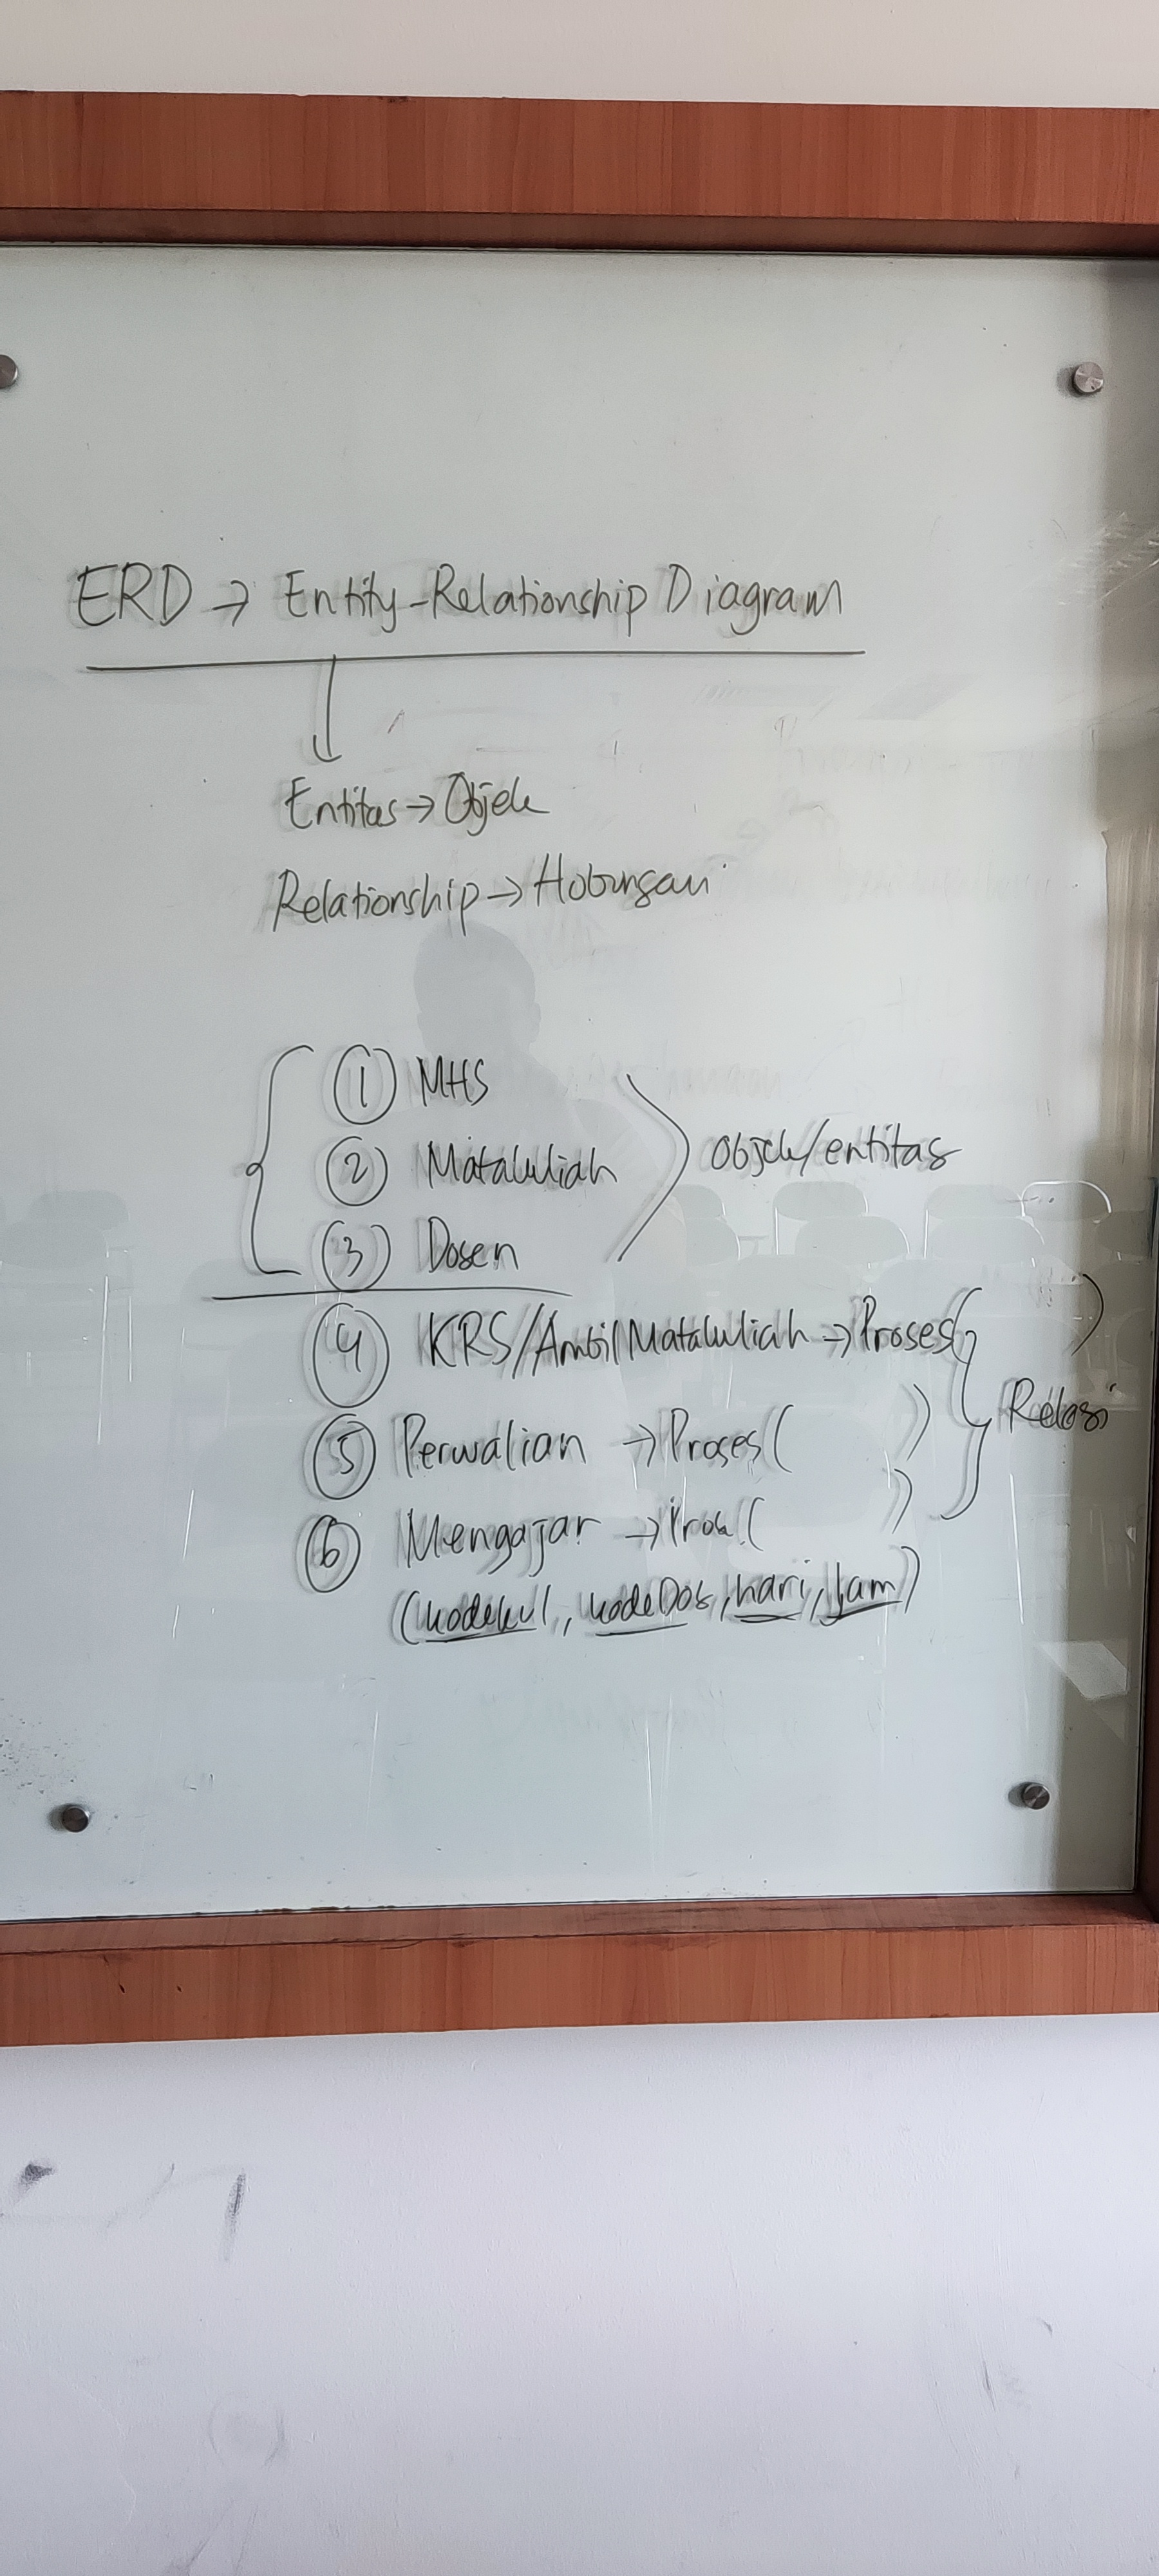 ERD → Entity-Relationship Diagram
Entitas → Objek
Relationship → Hubungan
① MHS
② Matakuliah
③ Dosen
Objek/entitas
④ KRS/Ambil Matakuliah → Proses( )
⑤ Perwalian → Proses( )
⑥ Mengajar → Pros( )
Relasi
(kodekul, kodeDos, hari, jam)